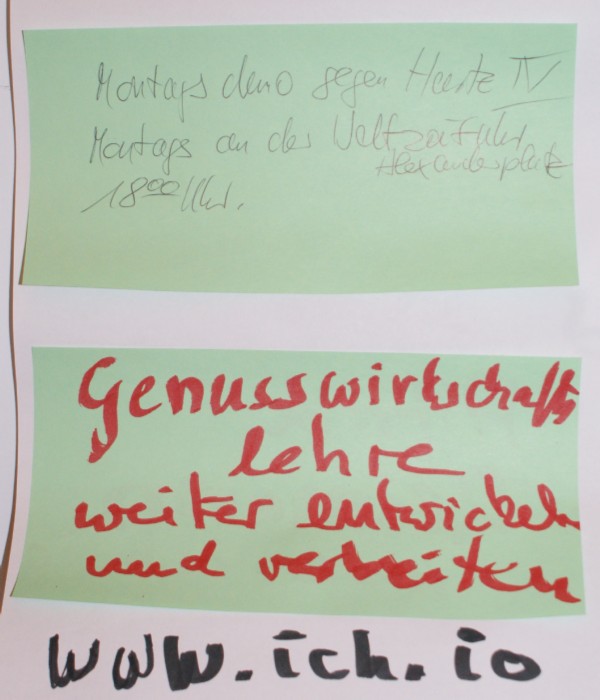 Montags demo gegen Hartz IV
Montags an der Weltzeituhr
Alexanderplatz
18 00 Uhr.
Genusswirtschafts
lehre
weiter entwickeln
und verbreiten
www.ich.io